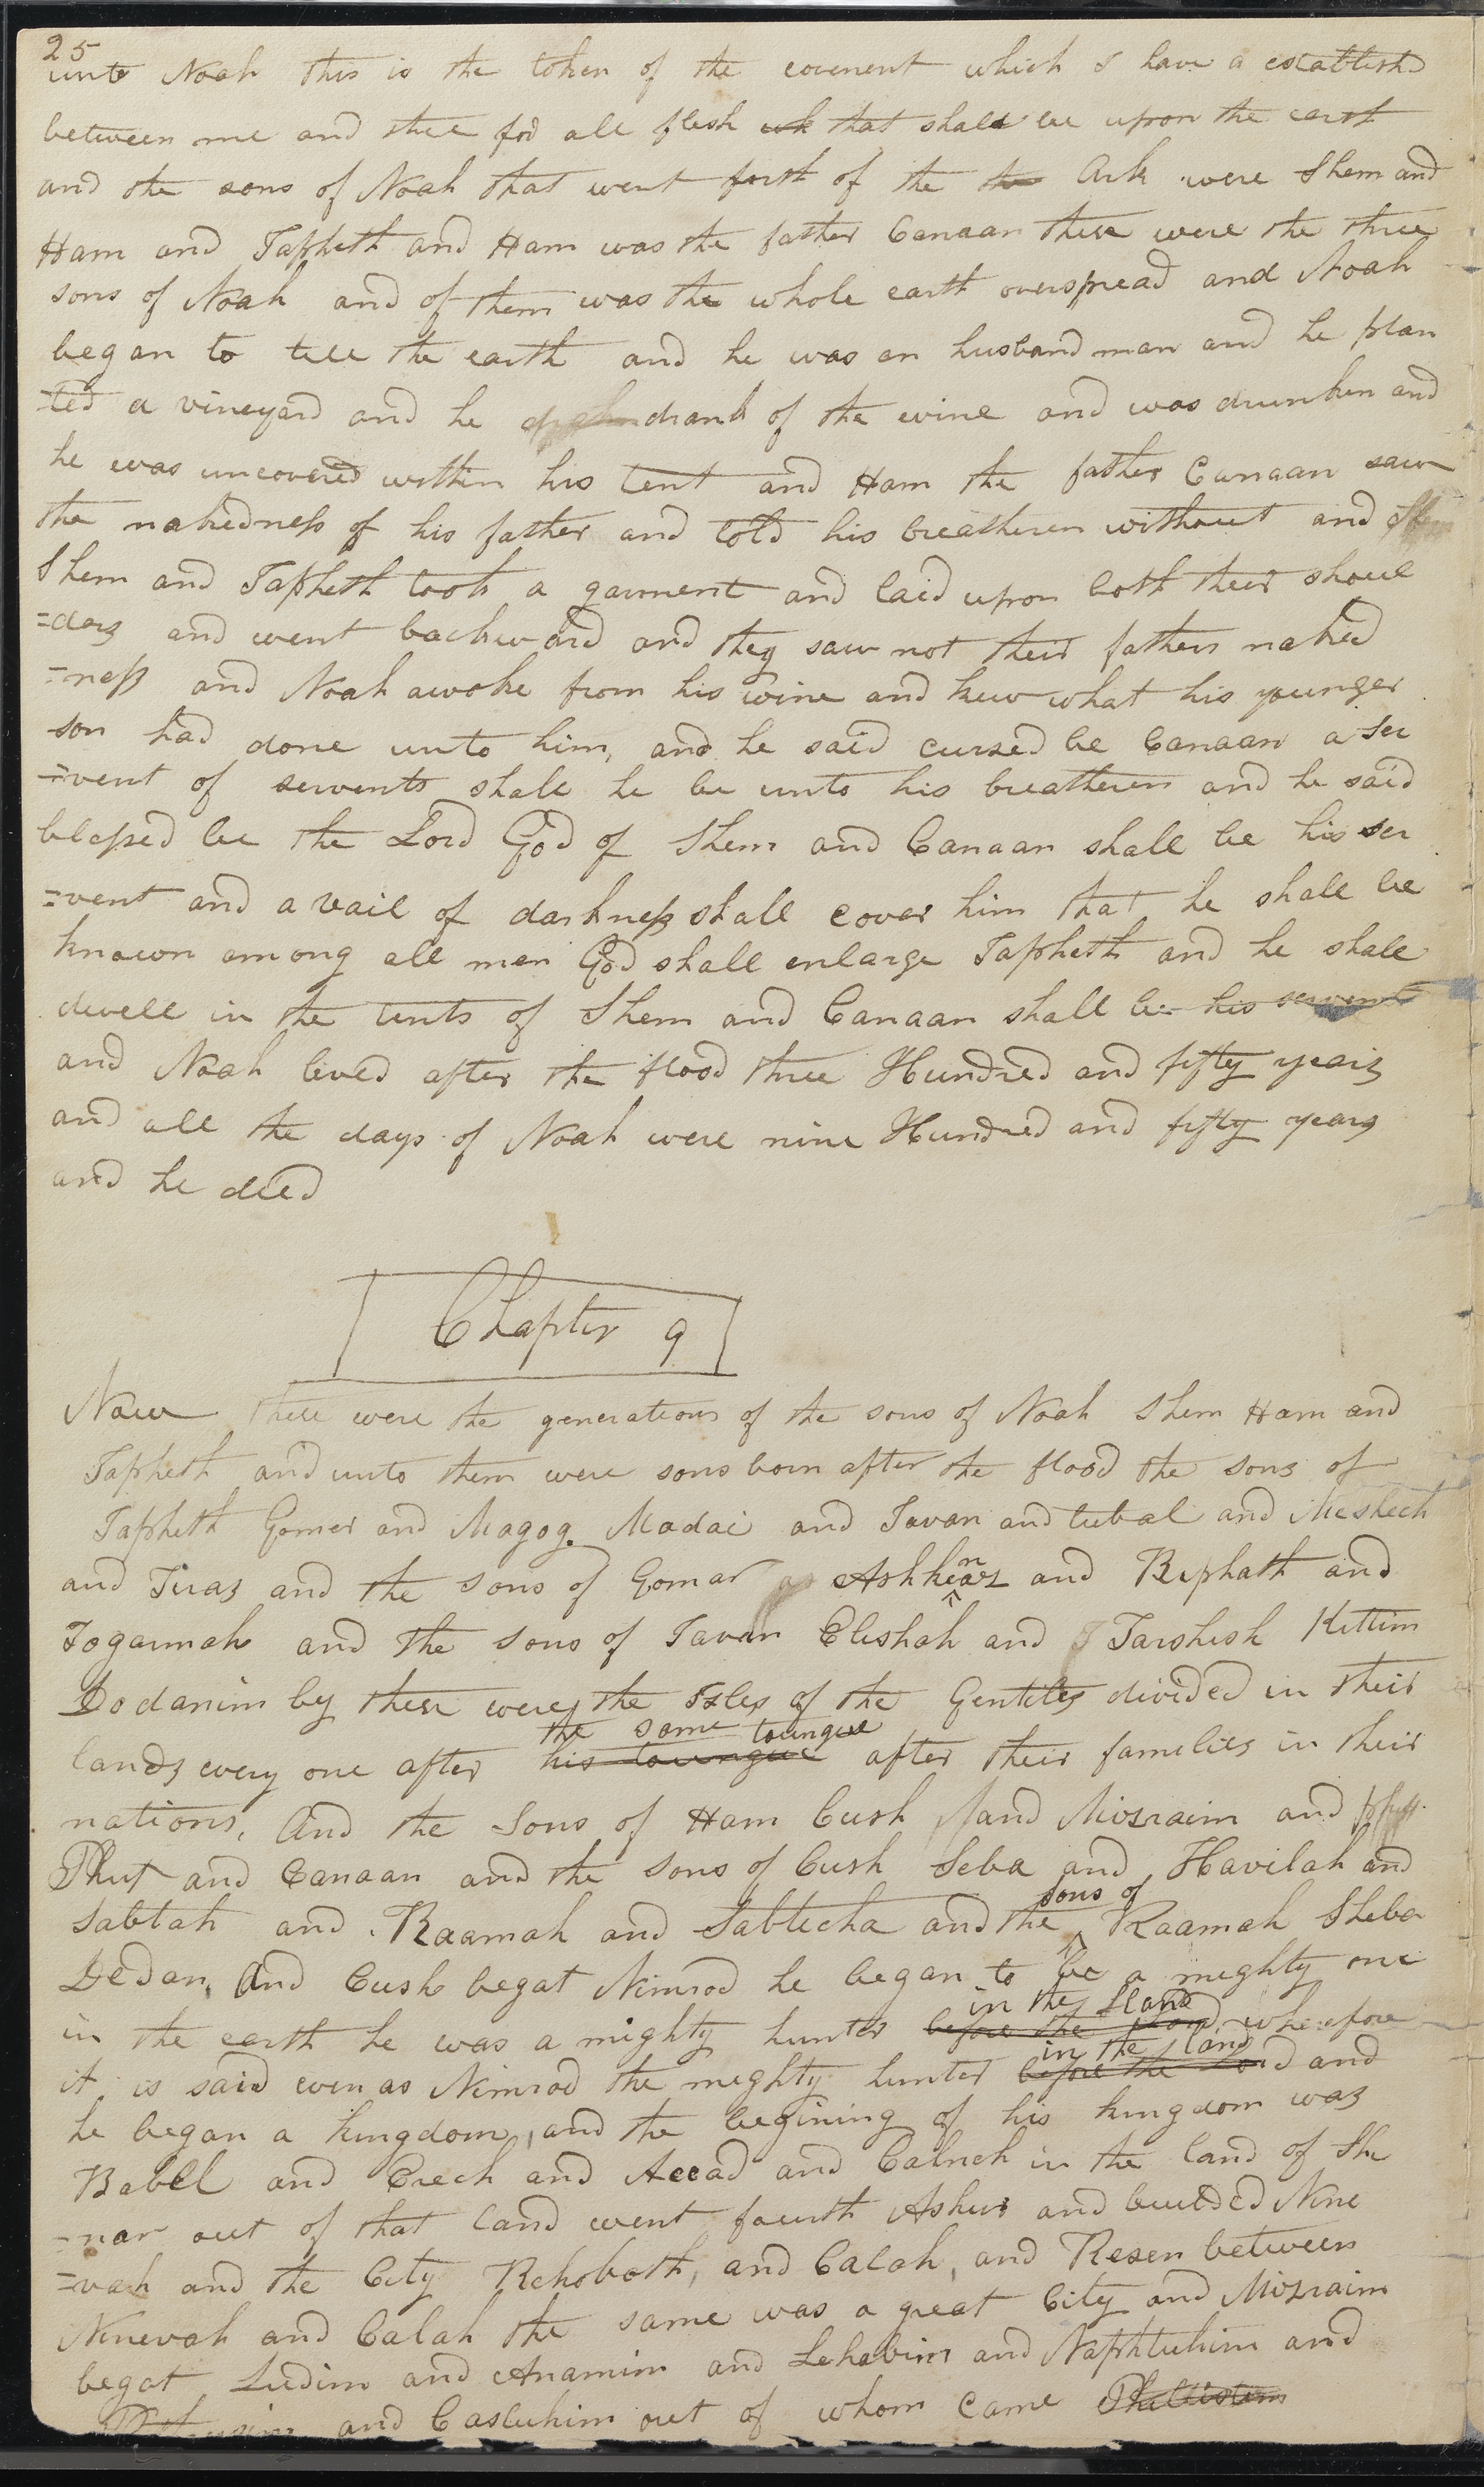 25
unto Noah this is the token of the covenent which I have a establishd
between me and thee for all flesh wh that shall be upon the earth
and the sons of Noah that went forth of the the Ark were Shem and
Ham and Japheth and Ham was the father Canaan these were the three
sons of Noah and of them was the whole earth overspread and Noah
began to till the earth and he was an husband man and he plan
=ted a vineyard and he drank of the wine and was drunken and
he was uncovered within his tent and Ham the father Canaan saw
the nakedness of his father and told his breatheren without and Shem
Shem and Japheth took a garment and laid upon both their shoul
=ders and went backward and they saw not their fathers naked
=ness and Noah awoke from his wine and knew what his younger
son had done unto him, and he said cursed be Canaan a ser
=vent of servents shall he be unto his breatheren and he said
blessed be the Lord God of Shem and Canaan shall be his ser
=vent and a vail of darkness shall cover him that he shall be
known among all men God shall enlarge Japheth and he shall
dwell in the tents of Shem and Canaan shall be his servent
and Noah lived after the flood three Hundred and fifty years
and all the days of Noah were nine Hundred and fifty years
and he died
Chapter 9
Now these were the generations of the sons of Noah Shem Ham and
Japheth and unto them were sons born after the flood the sons of
Japheth Gomer and Magog. Madai and Javan and tubal and Meshech
and Tiras and the sons of Gomar Ashkenaz and Riphath and
Togarmah and the sons of Javan Elishah and T Tarshish Kittim
Dodanim by these were the Isles of the Gentiles divided in their
the same toungue
lands every one after his toungue after their families in their
nations. And the Sons of Ham Cush and Mizraim and
Phut and Canaan and the sons of Cush Seba and Havilah and
sons of
Sabtah and Raamah and Sabtecha and the Raamah Sheba
Dedan. And Cush begat Nimrod he began to be a mighty one
in the land
in the earth he was a mighty hunter before the Lord, wherefore
in the land
it is said even as Nimrod the mighty hunter before the Lord and
he began a kingdom, and the begining of his kingdom was
Babel and Erech and Accad and Calneh in the land of Shi
=nar out of that land went fourth Ashur and builded Nine
=vah and the City Rehoboth, and Calah, and Resen between
Ninevah and Calah the same was a great City and Mizraim
begat Ludim and Anamim and Lehabim and Naphtuhim and
and Casluhim out of whom came Phillistim